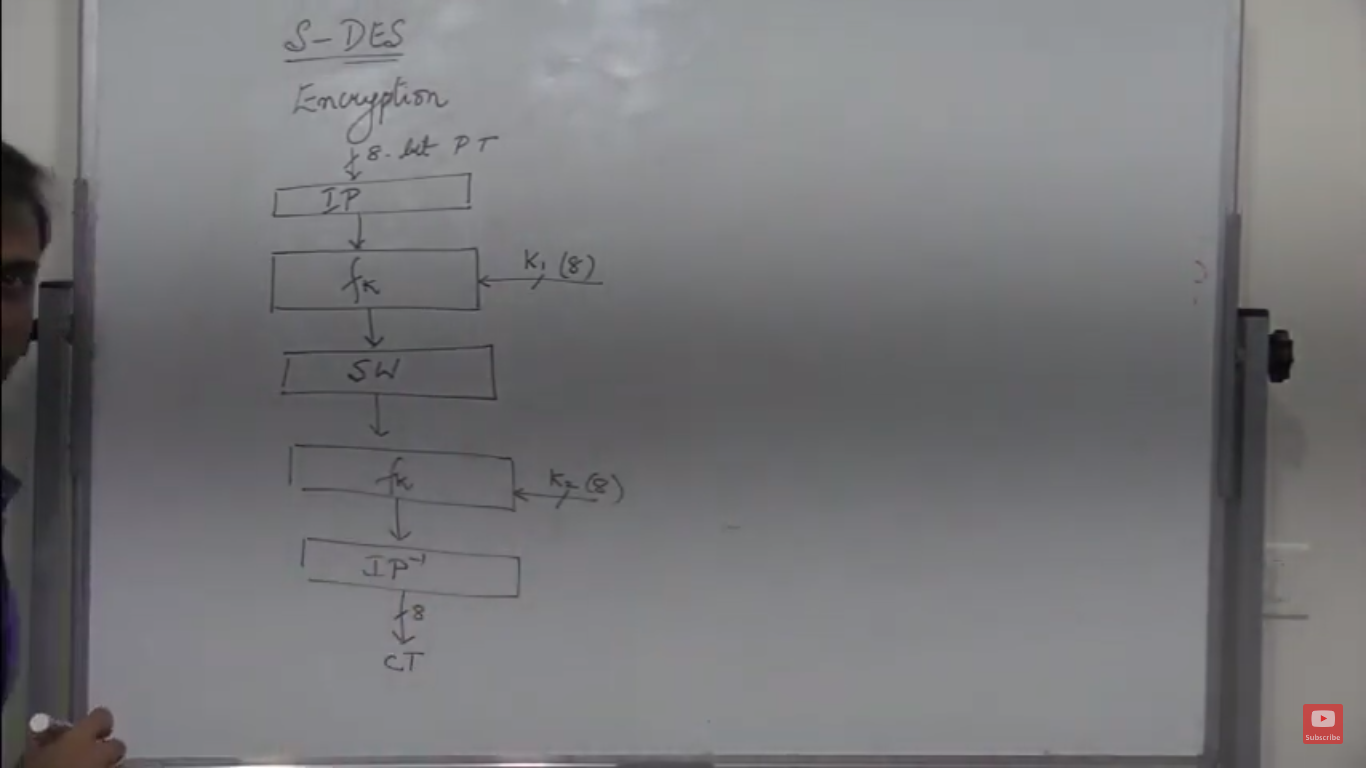 S-DES
Encryption
8-bit PT
IP
fK
K1 (8)
SW
fK
K2 (8)
IP⁻¹
8
CT
Subscribe